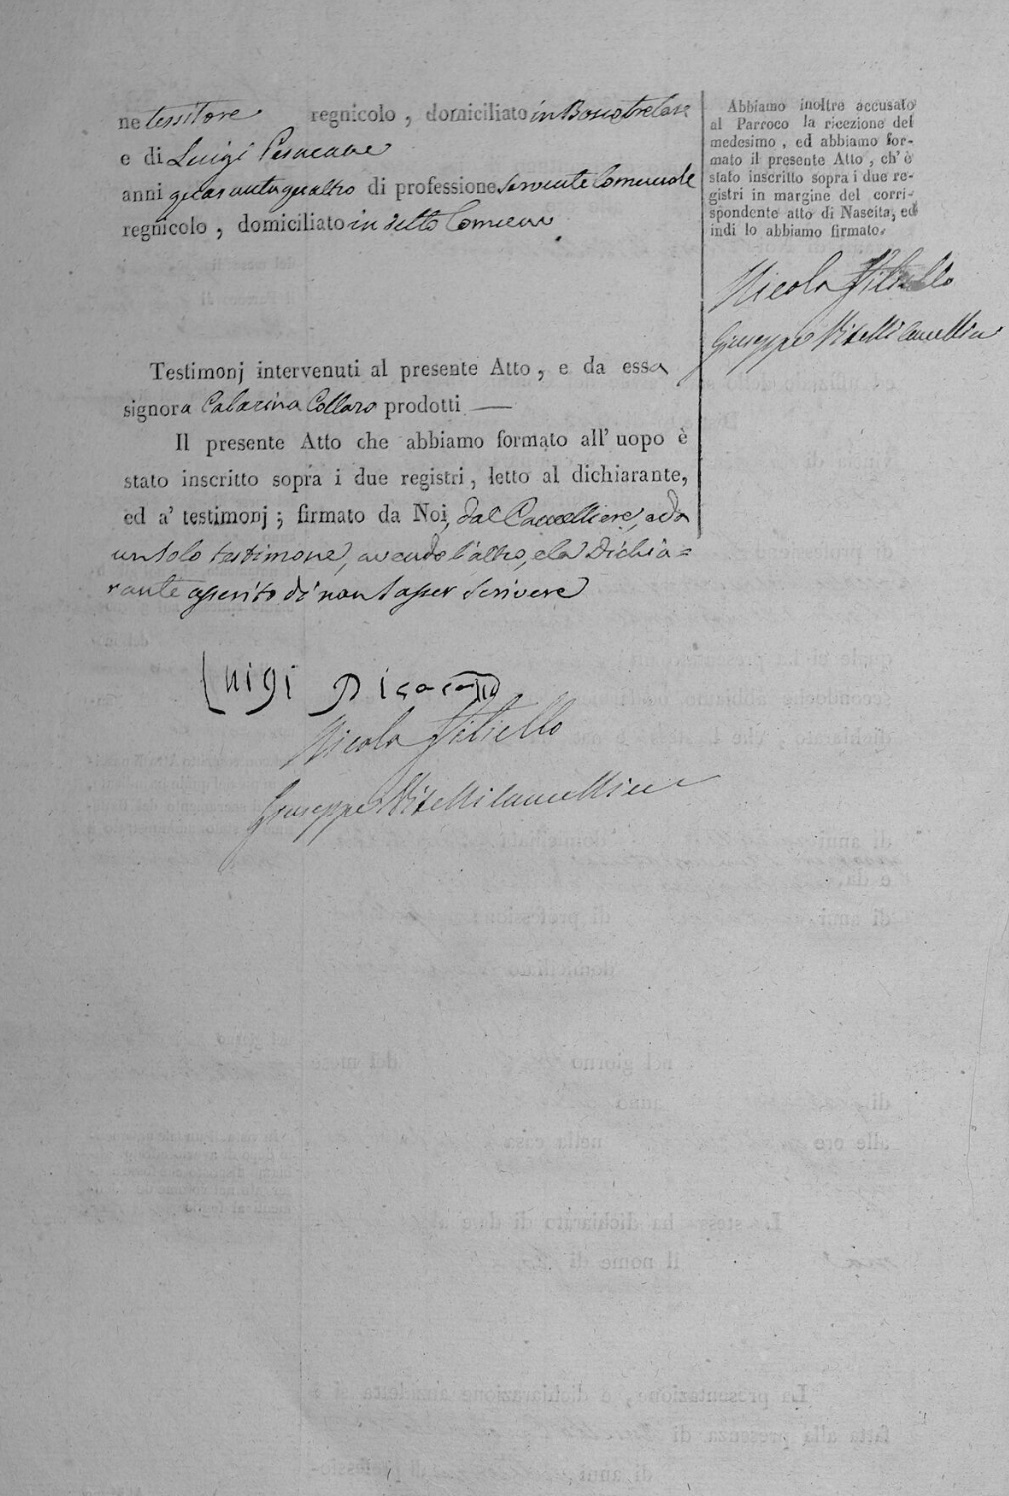 ne tessitore regnicolo, domiciliato in Boscotrecase
e di Luigi Pesacane
anni quarantaquattro di professione servente Comunale
regnicolo, domiciliato in detto Comune
Testimonj intervenuti al presente Atto, e da essa
signora Catarina Collaro prodotti —
Il presente Atto che abbiamo formato all' uopo è
stato inscritto sopra i due registri, letto al dichiarante,
ed a' testimonj; firmato da Noi, dal Cancelliere, e da
un solo testimone, avendo l'altro, e la Dichia=
rante asserito di non saper scrivere
Luigi
Nicola Vitiello
Giuseppe Vitelli Cancelliere
Abbiamo inoltre accusato
al Parroco la ricezione del
medesimo, ed abbiamo for-
mato il presente Atto, ch' è
stato inscritto sopra i due re-
gistri in margine del corri-
spondente atto di Nascita, ed
indi lo abbiamo firmato.
Nicola Vitiello
Giuseppe Vitelli Cancelliere